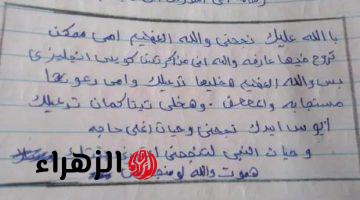 بالله عليك نجحني والله العظيم امي ممكن
تروح فيها عارفه والله اني مذاكرتش كويس انجليزي
بس والله العظيم هخليها تدعيلك وامي دعوتها
مستجابه و وهخلي تيتا كمان تدعيلك
ابوس ايدك نجحني وحيات اغلي حاجه
وحيات النبي لتنجحني
هموت والله لو
الزهراء